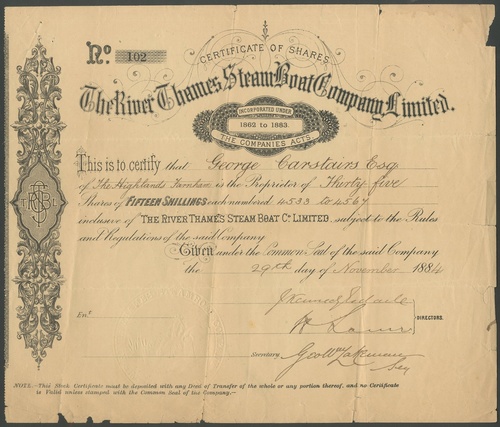 No. 102
CERTIFICATE OF SHARES
The River Thames Steam Boat Company Limited.
INCORPORATED UNDER
1862 to 1883
THE COMPANIES ACTS.
This is to certify that George Carstairs Esq
of The Highlands Farnham is the Proprietor of Thirty five
Shares of FIFTEEN SHILLINGS each numbered 4533 to 4567
inclusive of THE RIVER THAMES STEAM BOAT Co. LIMITED, subject to the Rules
and Regulations of the said Company
Given under the Common Seal of the said Company
the 29th day of November 1884
Ent.
DIRECTORS.
Secretary Geo Wm Lakeman
Sec
NOTE.—This Stock Certificate must be deposited with any Deed of Transfer of the whole or any portion thereof, and no Certificate
is Valid unless stamped with the Common Seal of the Company.